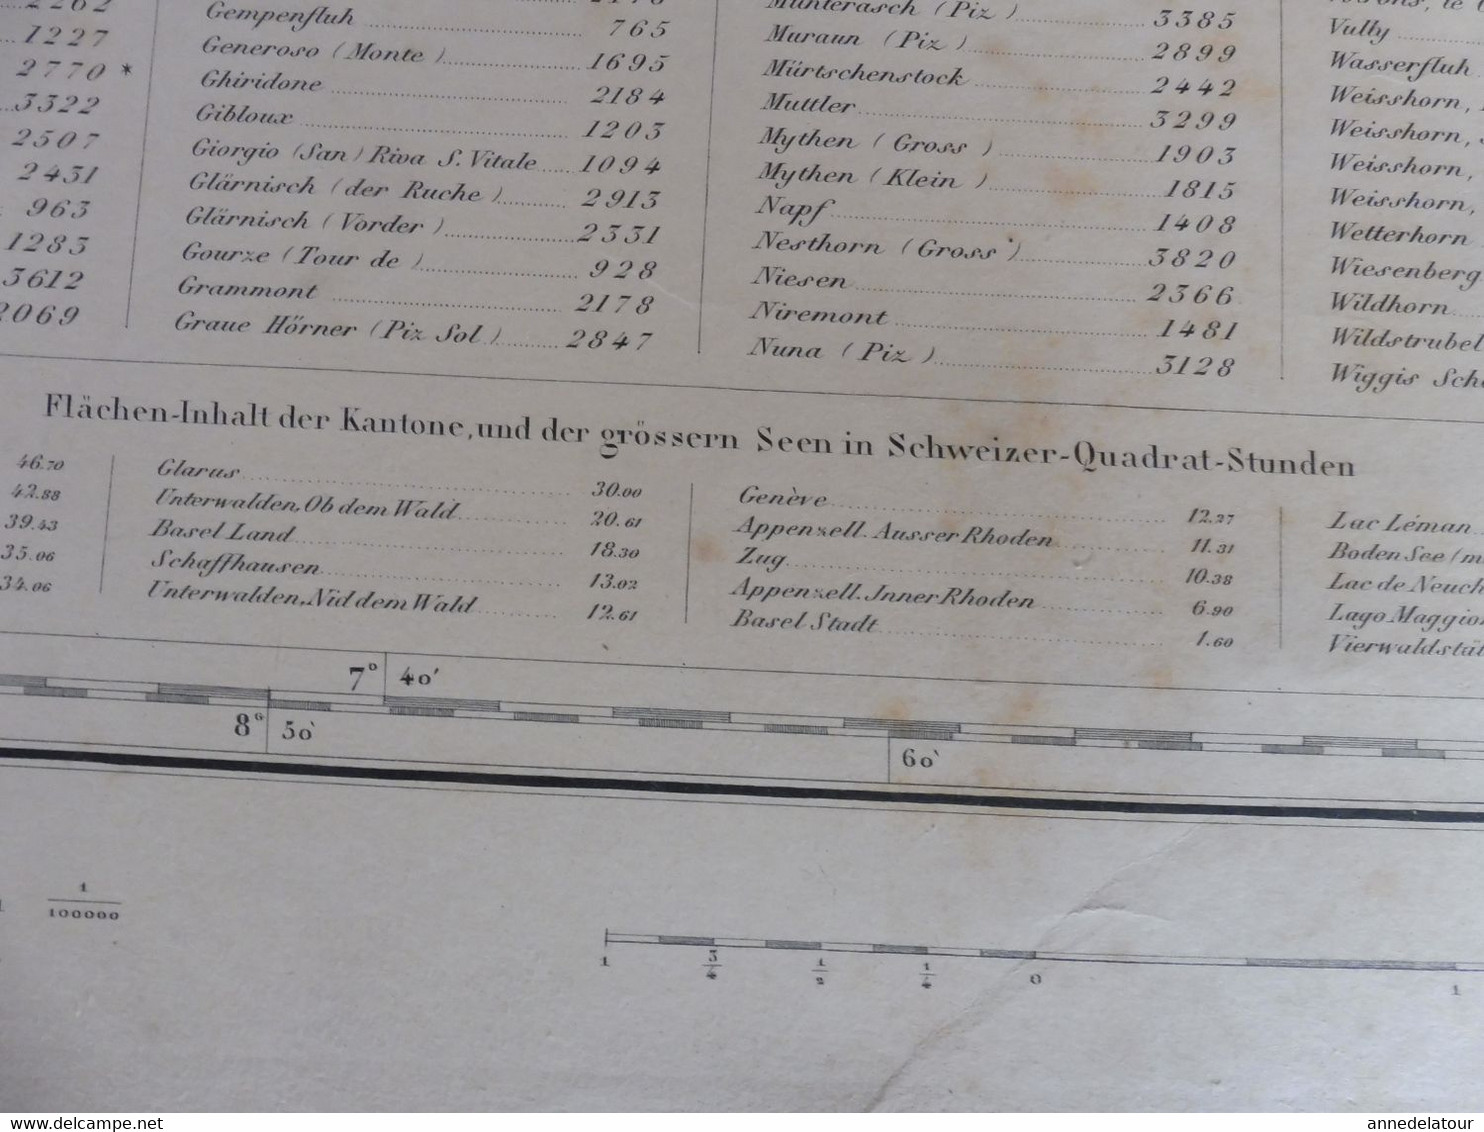 2262
1227
2770 *
3322
2507
2431
963
1283
3612
2069
Gempenfluh 765
Generoso (Monte) 1695
Ghiridone 2184
Gibloux 1203
Giorgio (San) Riva S. Vitale 1094
Glärnisch (der Ruche) 2913
Glärnisch (Vorder) 2331
Gourze (Tour de) 928
Grammont 2178
Graue Hörner (Piz Sol) 2847
Munterasch (Piz) 3385
Muraun (Piz) 2899
Mürtschenstock 2442
Muttler 3299
Mythen (Gross) 1903
Mythen (Klein) 1815
Napf 1408
Nesthorn (Gross) 3820
Niesen 2366
Niremont 1481
Nuna (Piz) 3128
Vully
Wasserfluh
Weisshorn,
Weisshorn,
Weisshorn,
Weisshorn,
Wetterhorn
Wiesenberg
Wildhorn
Wildstrubel
Wiggis
Flächen-Inhalt der Kantone, und der grössern Seen in Schweizer-Quadrat-Stunden
46.70
42.88
39.43
35.06
34.06
Glarus 30.00
Unterwalden, Ob dem Wald 20.61
Basel Land 18.30
Schaffhausen 13.02
Unterwalden, Nid dem Wald 12.61
Genève 12.27
Appenzell. Ausser Rhoden 11.31
Zug 10.38
Appenzell. Inner Rhoden 6.90
Basel Stadt 1.60
Lac Léman
Boden See (m
Lac de Neuch
Lago Maggior
Vierwaldstät
7° 40'
8° 50'
60'
1
100000
1 3/4 1/2 1/4 0 1
www.delcampe.net
annedelatour